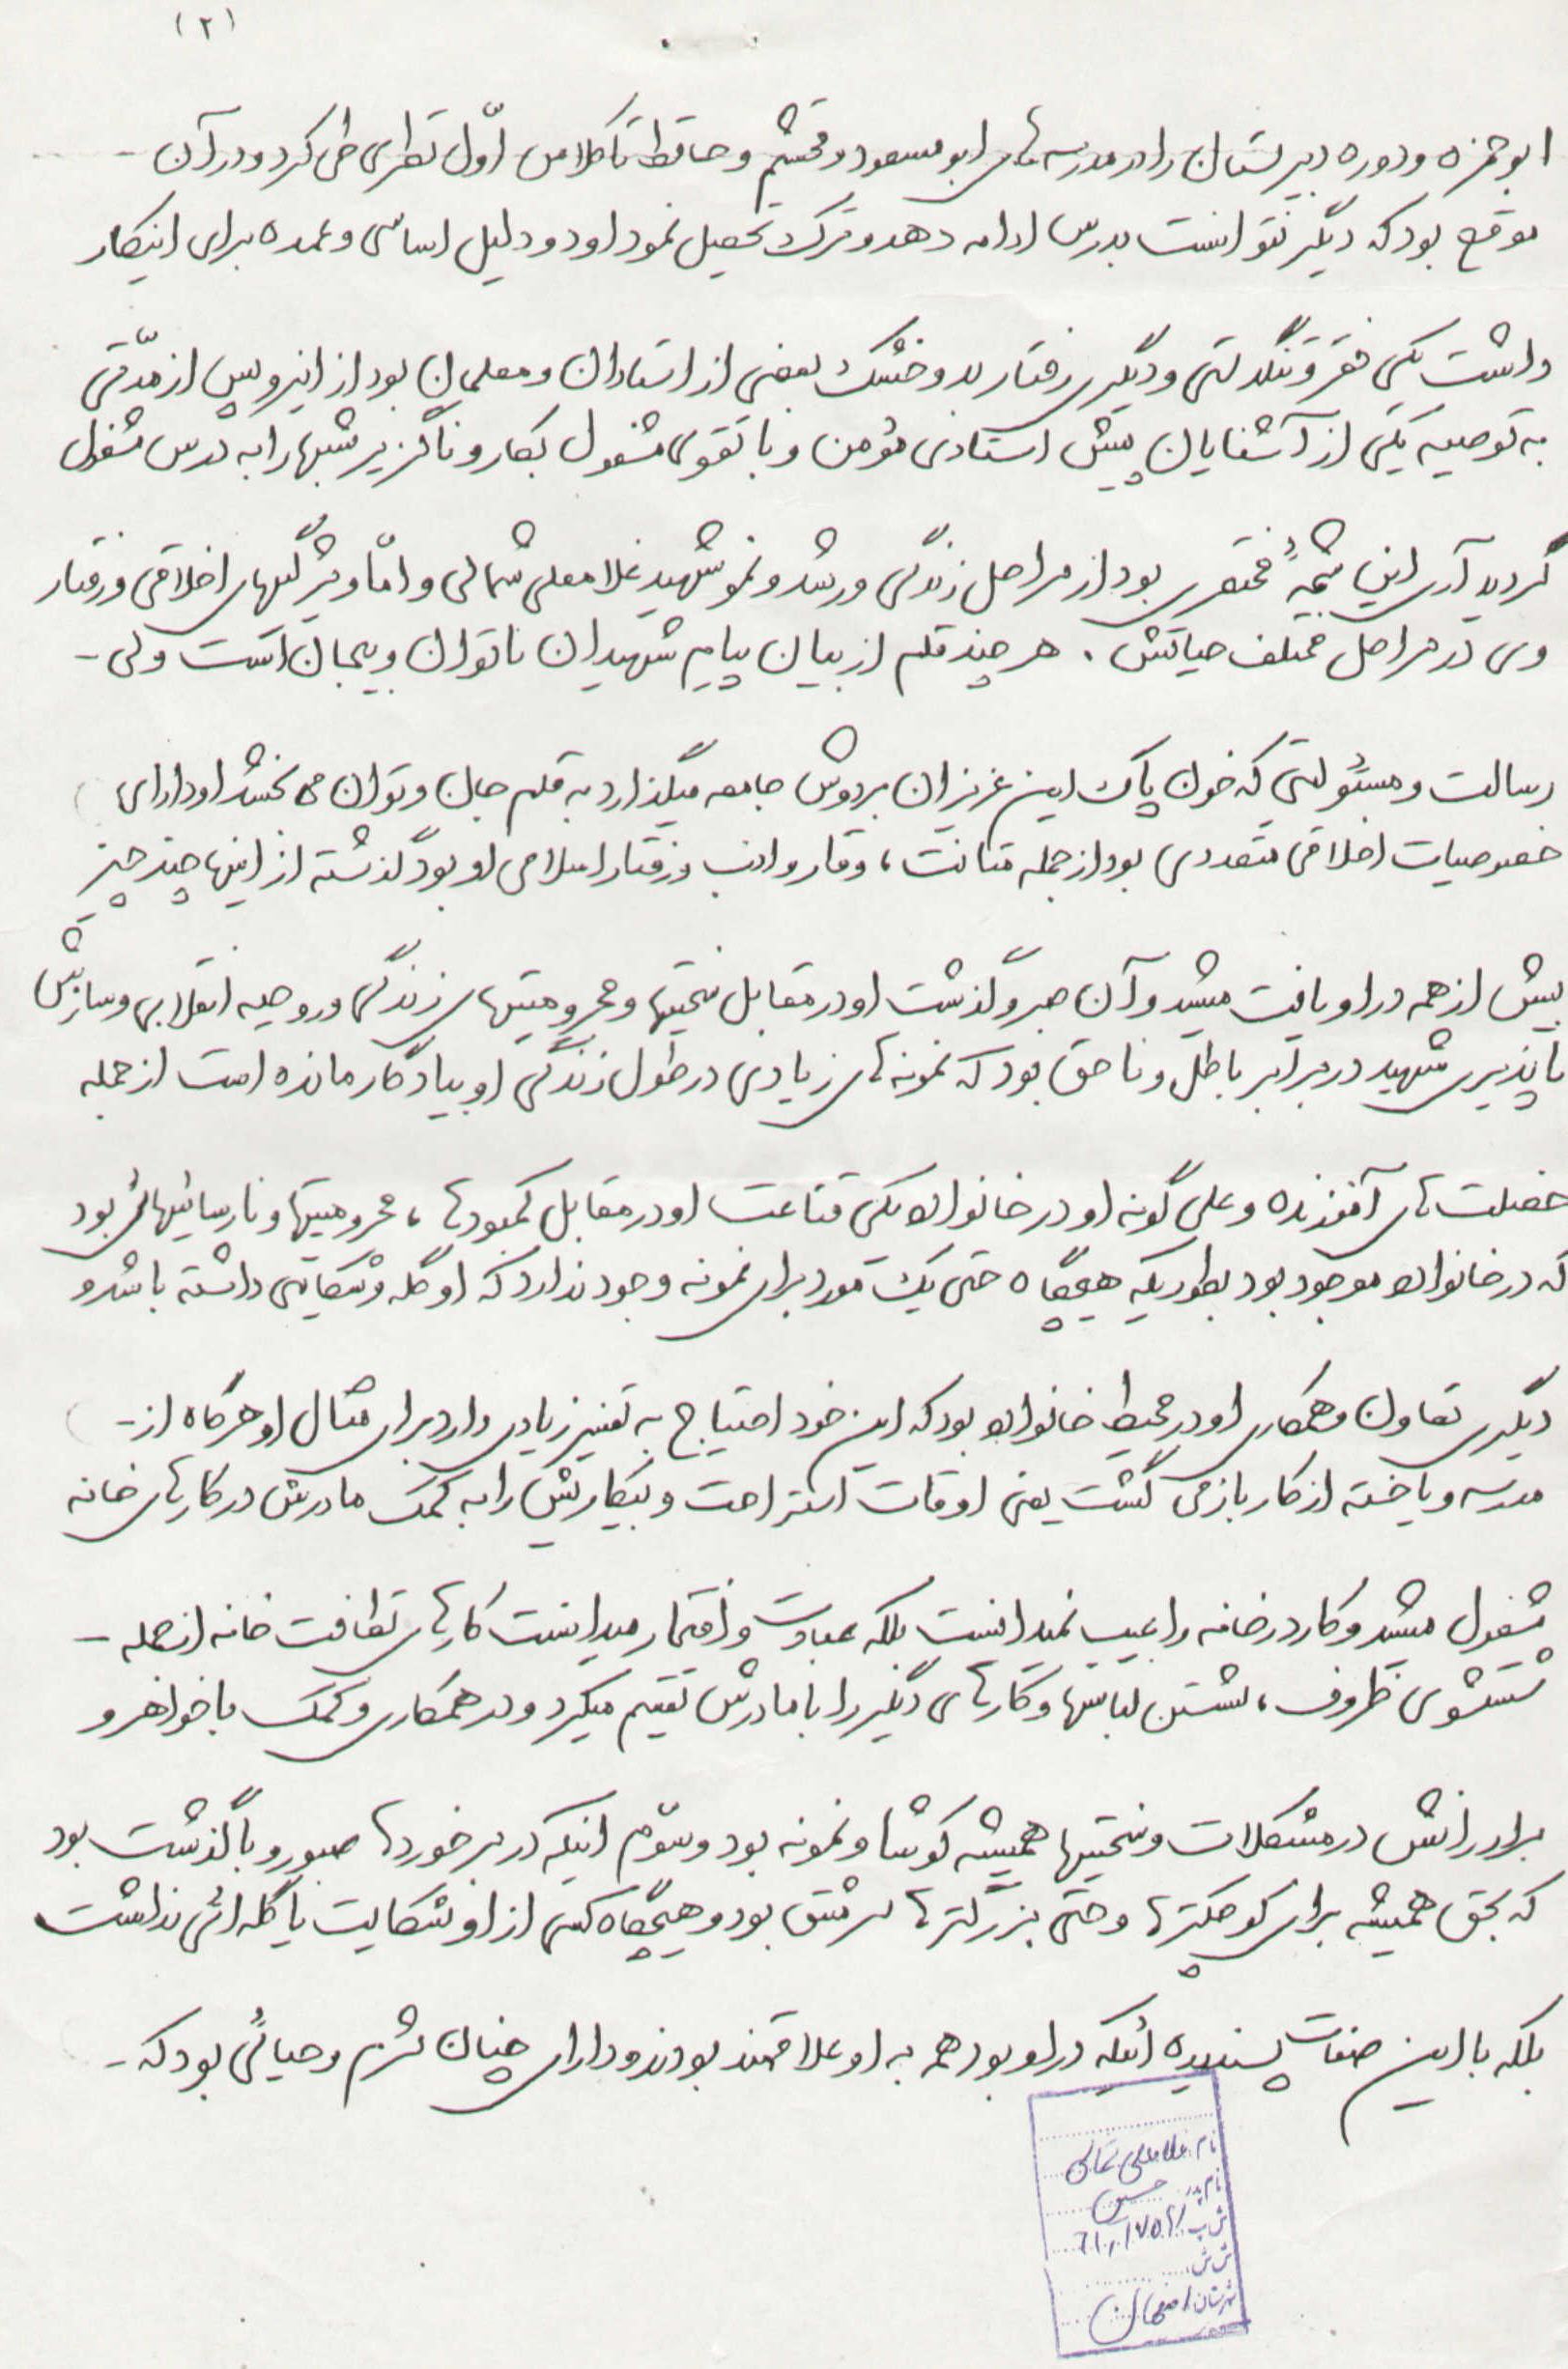 (۲)
ابوحمزه و دوره دبیرستان را در مدرسه‌های ابومسعود و محتشم و حافظ تا کلاس اوّل نظری طی کرد و در آن -
موقع بود که دیگر نتوانست بدرس ادامه دهد و ترک تحصیل نمود او دو دلیل اساسی و عمده برای اینکار
داشت یکی فقر و تنگدستی و دیگری رفتار بد و خشک بعضی از استادان و معلمان بود از اینرو پس از مدّتی
به توصیه یکی از آشنایان پیش استادی مؤمن و با تقوی مشغول بکار و ناگزیر شبها را به درس مشغول
گردید آری این شمّهٔ مختصری بود از مراحل زندگی و رشد و نمو شهید غلامعلی شمالی و امّا ویژگیهای اخلاقی و رفتار
وی در مراحل مختلف حیاتش . هر چند قلم از بیان پیام شهیدان ناتوان و بیجان است ولی -
رسالت و مسئولیتی که خون پاک این عزیزان بردوش جامعه میگذارد به قلم جان و توان می بخشد او دارای
خصوصیات اخلاقی متعددی بود از جمله متانت ، وقار و ادب و رفتار اسلامی او بود گذشته از اینها چند چیز
بیش از همه در او یافت میشد و آن صبر و گذشت او در مقابل سختیها و محرومیتهای زندگی و روحیه انقلابی و سازش
ناپذیری شهید در برابر باطل و ناحق بود که نمونه‌های زیادی در طول زندگی او بیادگار مانده است از جمله
خصلت‌های آموزنده و علی گونه او در خانواده یکی قناعت او در مقابل کمبودها ، محرومیتها و نارسائیهائی بود
که در خانواده موجود بود بطوریکه هیچگاه حتی یک مورد برای نمونه وجود ندارد که او گله و شکایتی داشته باشد و
دیگری تعاون و همکاری او در محیط خانواده بود که این خود احتیاج به تفسیر زیادی دارد برای مثال او هرگاه از -
مدرسه و یا خسته از کار باز می گشت یعنی اوقات استراحت و بیکاریش را به کمک مادرش در کارهای خانه
مشغول میشد و کار در خانه را عیب نمیدانست بلکه عبادت و افتخار میدانست کارهای نظافت خانه از جمله -
شستشوی ظروف ، شستن لباسها و کارهای دیگر را با مادرش تقسیم میکرد و در همکاری و کمک با خواهر و
برادرانش در مشکلات و سختیها همیشه کوشا و نمونه بود و سوّم اینکه در برخوردها صبور و با گذشت بود
که بحق همیشه برای کوچکترها و حتی بزرگترها سرمشق بود و هیچگاه کسی از او شکایت یا گله ائی نداشت
بلکه با این صفات پسندیده ائیکه در او بود همه به او علاقمند بودند و دارای چنان شرم و حیائی بود که -
نام غلامعلی شمالی
نام پدر حسین
ش پ
ش ش
شهرستان اصفهان